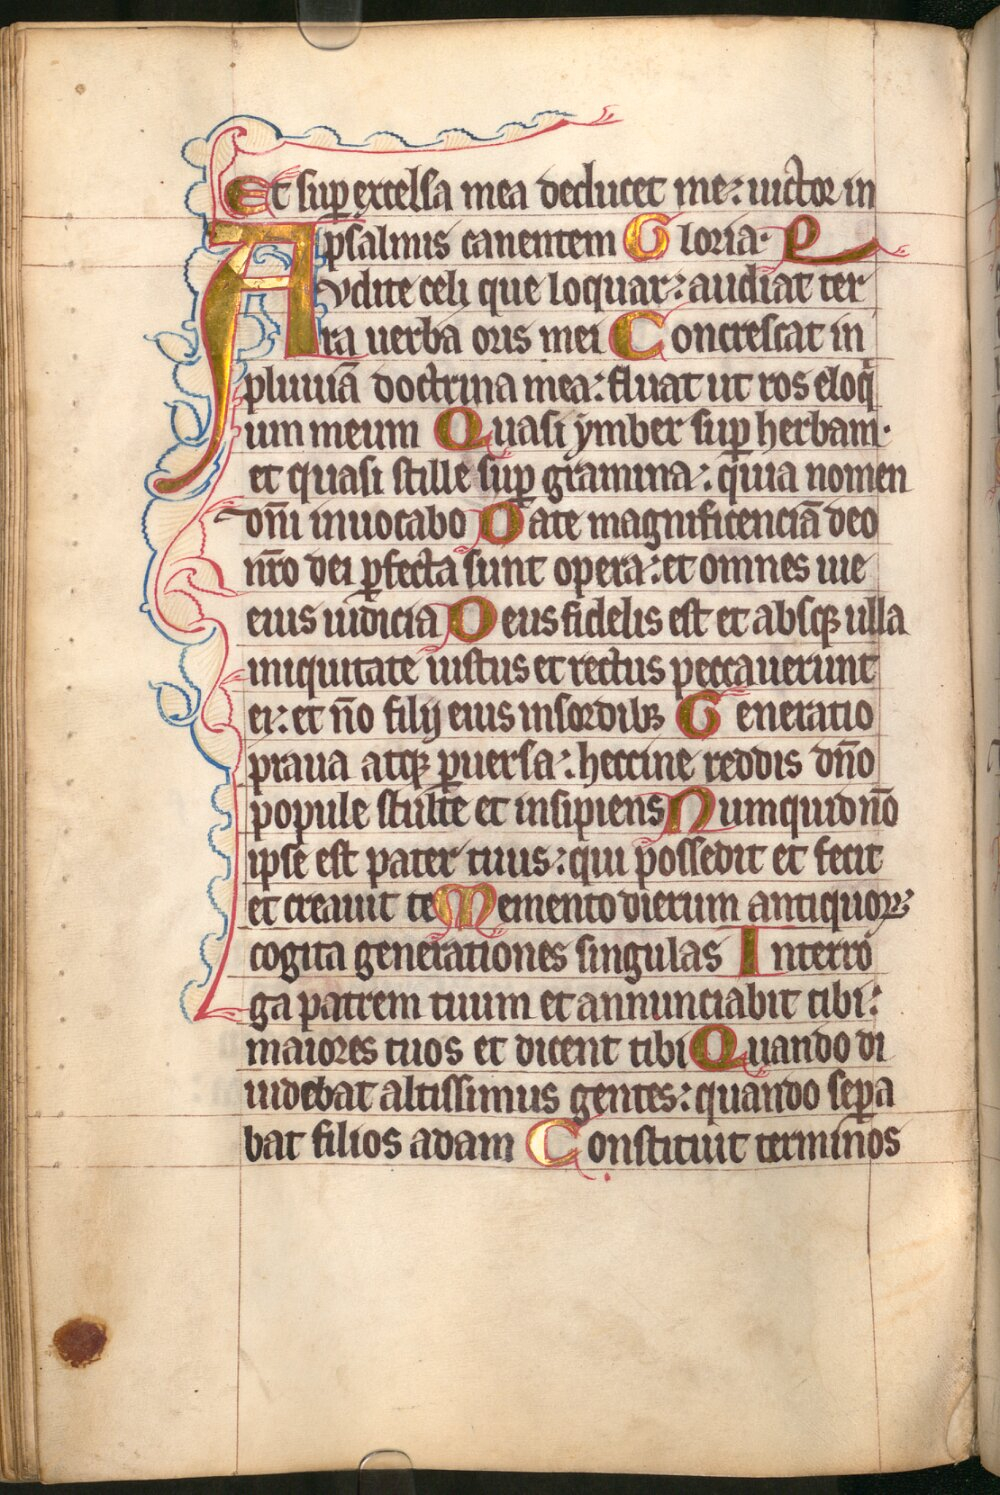 Et sup excelsa mea deducet me: uictor in
psalmis canentem Gloria. P
Audite celi que loquar: audiat ter
ra uerba oris mei Concrescat in
pluuiā doctrina mea: fluat ut ros eloqi
um meum Quasi ymber sup herbam.
et quasi stille sup gramina: quia nomen
dn̄i inuocabo Date magnificenciā deo
nr̄o dei pfecta sunt opera: et omnes uie
eius iudicia Deus fidelis est et absq ulla
iniquitate iustus et rectus peccauerunt
ei: et n̄o filij eius in sordibꝫ Generatio
praua atq puersa: heccine reddis dn̄o
popule stulte et insipiens Numquid n̄o
ipse est pater tuus: qui possedit et fecit
et creauit te Memento dierum antiquoꝝ:
cogita generationes singulas Interro
ga patrem tuum et annunciabit tibi:
maiores tuos et dicent tibi Quando di
uidebat altissimus gentes: quando sepa
bat filios adam Constituit terminos